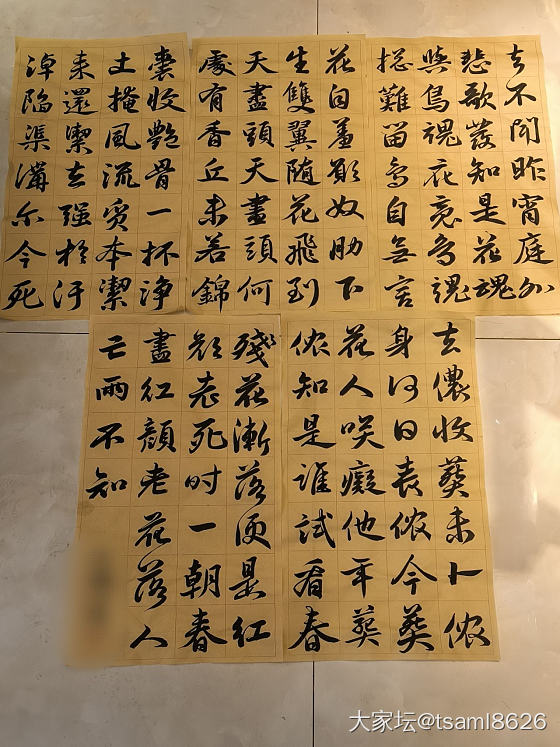 去不闻昨宵庭外
悲歌發知是花魂
與鳥魂花魂鳥魂
揔難留鳥自無言
花自羞願奴肋下
生雙翼随花飛到
天盡頭天盡頭何
處有香丘未若錦
囊收艷骨一杯淨
土掩風流質本潔
来還潔去强於汙
淖陷渠溝尔今死
去儂收葬未卜侬
身何日喪侬今葬
花人咲癡他年葬
侬知是誰試看春
殘花漸落便是紅
顔老死时一朝春
盡紅顔老花落人
亡兩不知
大家坛@tsaml8626